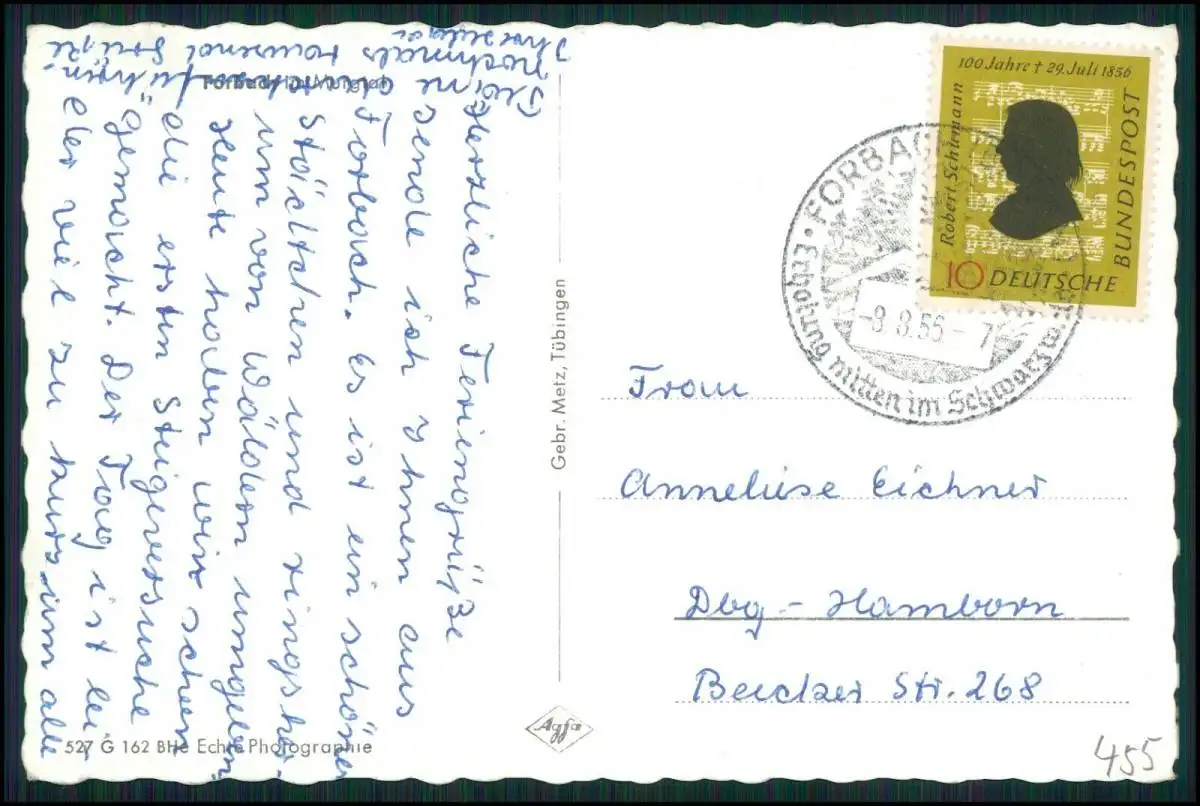 Forbach im Murgtal
Herzliche Feriengrüße
sende ich Ihnen aus
Forbach. Es ist ein schönes
Städtchen und ringsher-
um von Wäldern umgeben.
Heute haben wir schon
die ersten Steigversuche
gemacht. Der Tag ist lei-
der viel zu kurz um alle
nochmals tausend Grüße
Gebr. Metz, Tübingen
527 G 162 BHe Echte Photographie
Agfa
100 Jahre † 29. Juli 1856
Robert Schumann
10 DEUTSCHE
BUNDESPOST
FORBACH
-8.8.56-7
Erholung mitten im Schwarzw.
Frau
Anneliese Eichner
Dbg-Hamborn
Beecker Str. 268
455